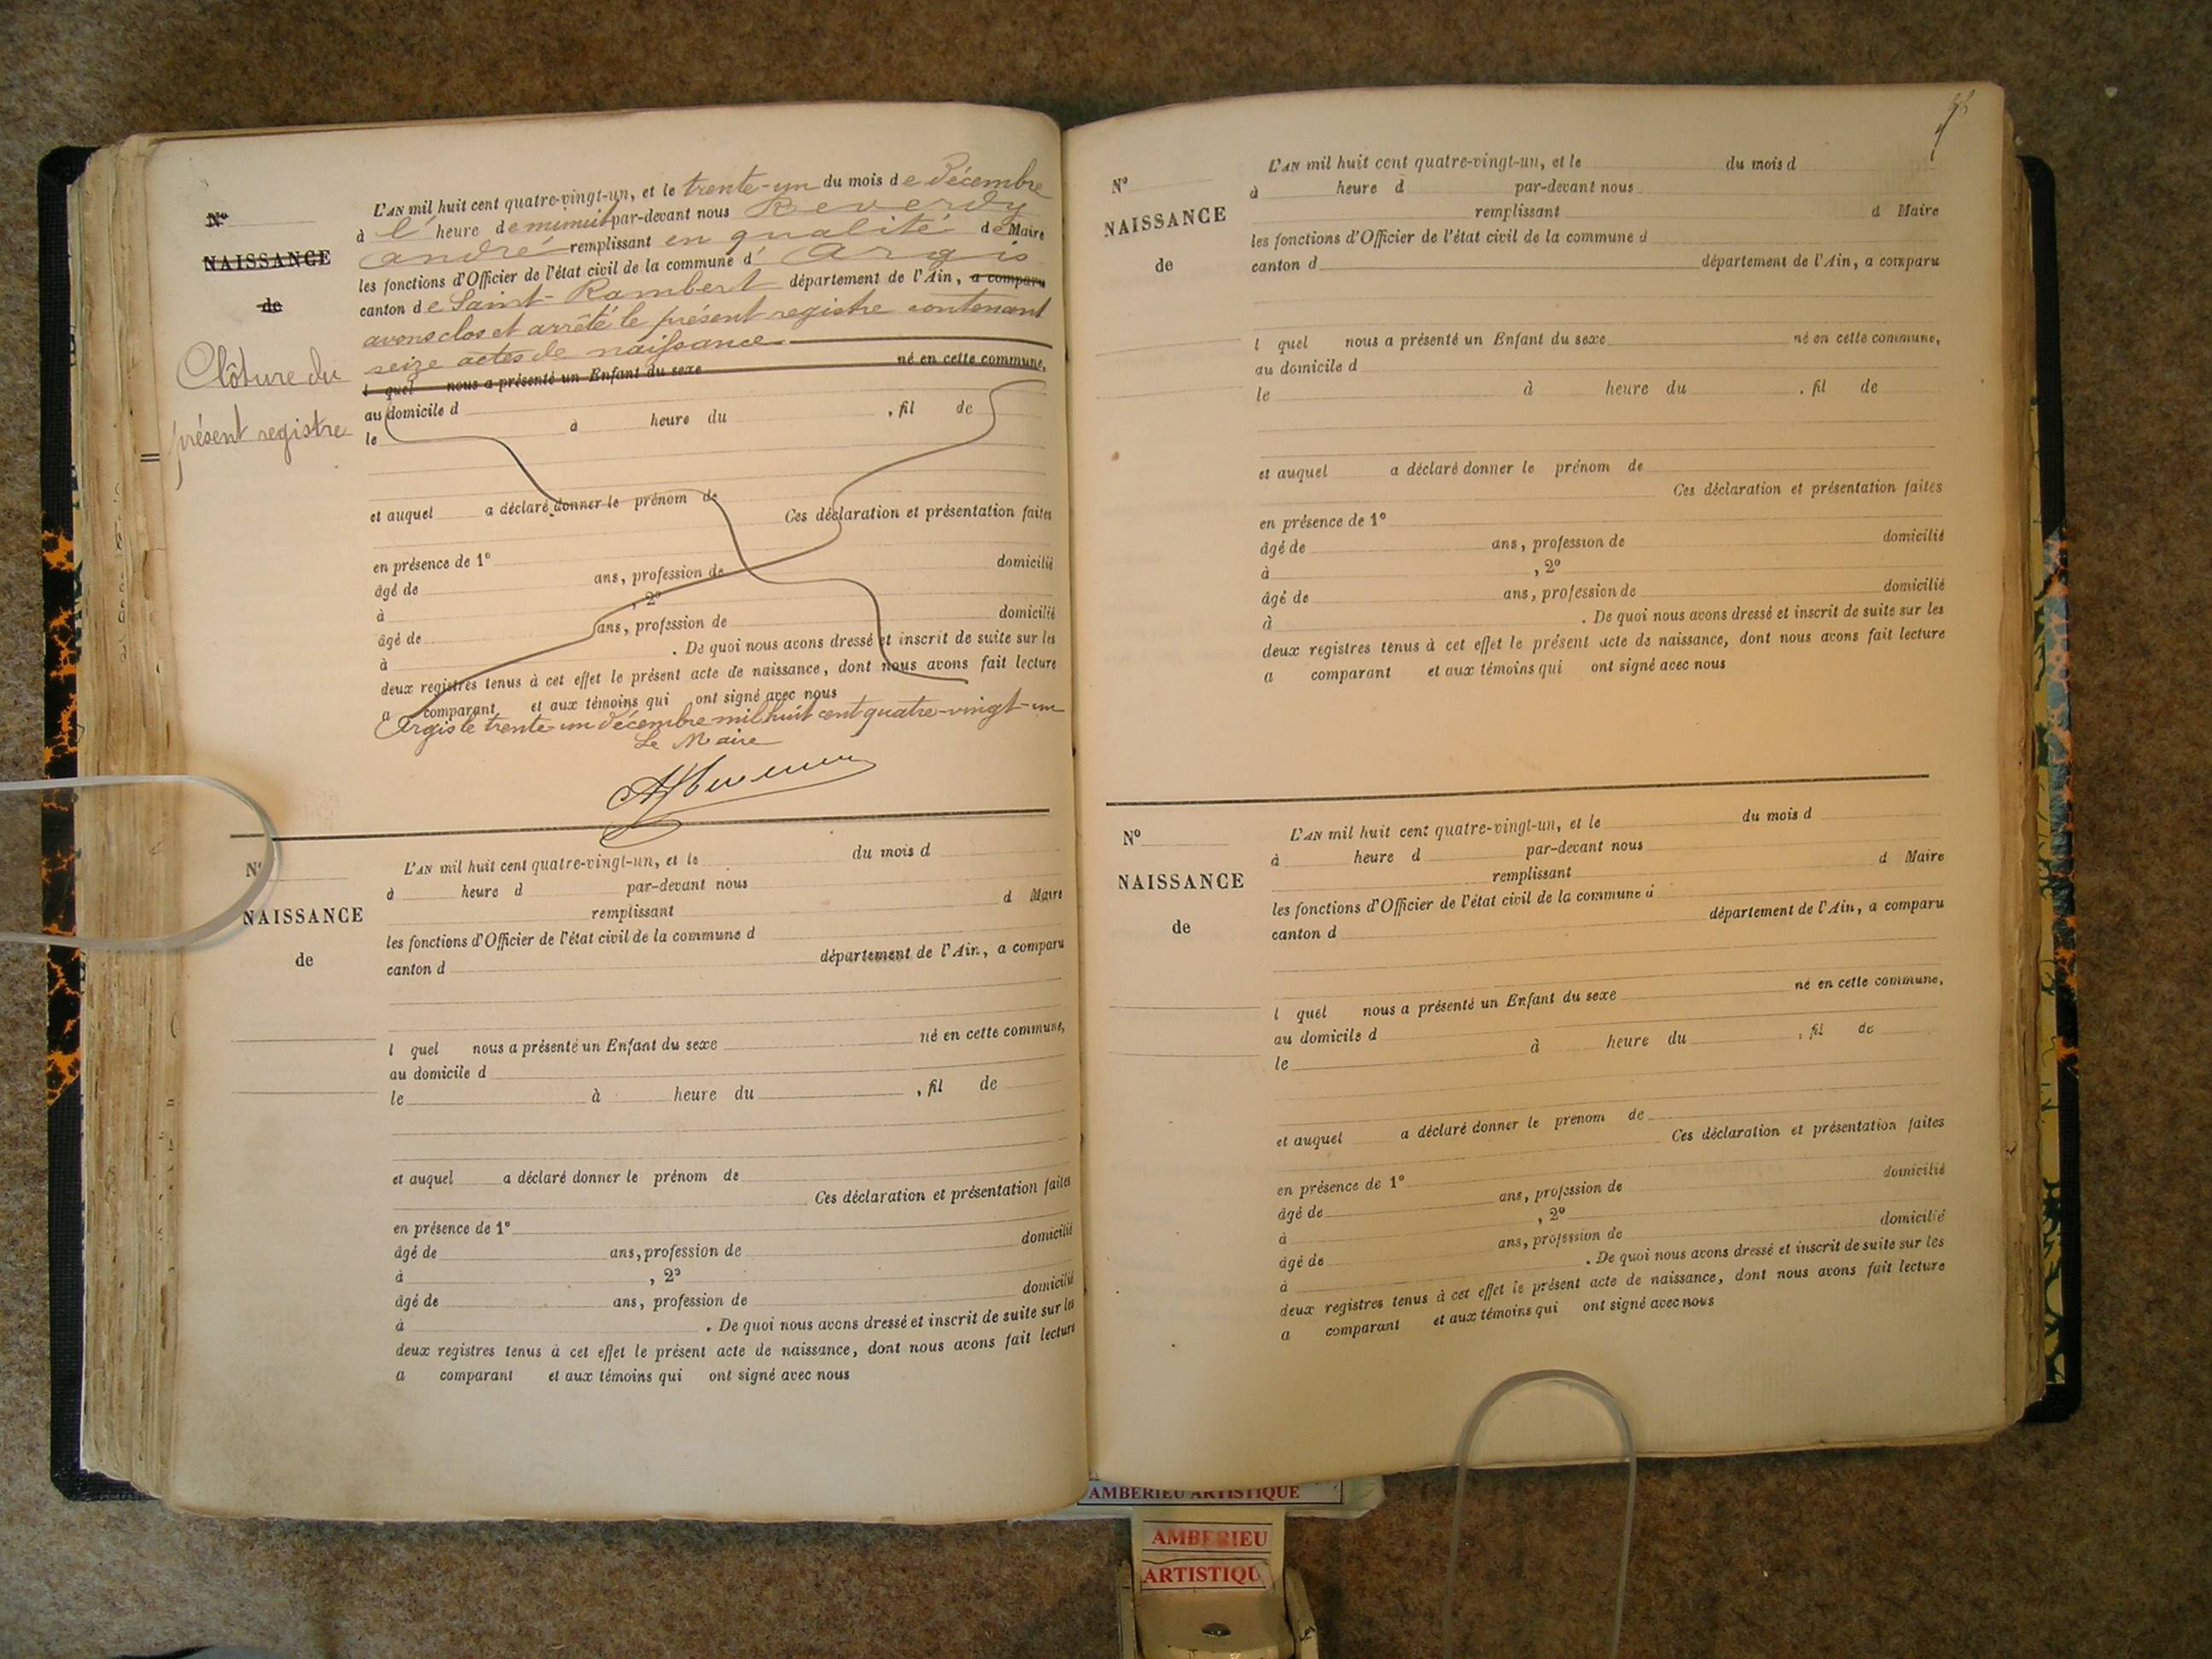 N°
NAISSANCE
de
Clôture du
présent registre
L'AN mil huit cent quatre-vingt-un, et le trente-un du mois de Décembre
à l' heure de minuit par-devant nous Reverdy
andré remplissant en qualité de Maire
les fonctions d'Officier de l'état civil de la commune d' Argis
canton de Saint-Rambert département de l'Ain, a comparu
avons clos et arrêté le présent registre contenant
seize actes de naissance
l quel nous a présenté un Enfant du sexe né en cette commune,
au domicile d
le à heure du , fil de
et auquel a déclaré donner le prénom de
Ces déclaration et présentation faites
en présence de 1°
âgé de ans, profession de domicilié
à , 2°
âgé de ans, profession de domicilié
à . De quoi nous avons dressé et inscrit de suite sur les
deux registres tenus à cet effet le présent acte de naissance, dont nous avons fait lecture
a comparant et aux témoins qui ont signé avec nous
Argis le trente-un Décembre mil huit cent quatre-vingt-un
Le Maire
N°
NAISSANCE
de
L'AN mil huit cent quatre-vingt-un, et le du mois d
à heure d par-devant nous
remplissant d Maire
les fonctions d'Officier de l'état civil de la commune d
canton d département de l'Ain, a comparu
l quel nous a présenté un Enfant du sexe né en cette commune,
au domicile d
le à heure du , fil de
et auquel a déclaré donner le prénom de
Ces déclaration et présentation faites
en présence de 1°
âgé de ans, profession de domicilié
à , 2°
âgé de ans, profession de domicilié
à . De quoi nous avons dressé et inscrit de suite sur les
deux registres tenus à cet effet le présent acte de naissance, dont nous avons fait lecture
a comparant et aux témoins qui ont signé avec nous
N°
NAISSANCE
de
L'AN mil huit cent quatre-vingt-un, et le du mois d
à heure d par-devant nous
remplissant d Maire
les fonctions d'Officier de l'état civil de la commune d
canton d département de l'Ain, a comparu
l quel nous a présenté un Enfant du sexe né en cette commune,
au domicile d
le à heure du , fil de
et auquel a déclaré donner le prénom de
Ces déclaration et présentation faites
en présence de 1°
âgé de ans, profession de domicilié
à , 2°
âgé de ans, profession de domicilié
à . De quoi nous avons dressé et inscrit de suite sur les
deux registres tenus à cet effet le présent acte de naissance, dont nous avons fait lecture
a comparant et aux témoins qui ont signé avec nous
N°
NAISSANCE
de
L'AN mil huit cent quatre-vingt-un, et le du mois d
à heure d par-devant nous
remplissant d Maire
les fonctions d'Officier de l'état civil de la commune d
canton d département de l'Ain, a comparu
l quel nous a présenté un Enfant du sexe né en cette commune,
au domicile d
le à heure du , fil de
et auquel a déclaré donner le prénom de
Ces déclaration et présentation faites
en présence de 1°
âgé de ans, profession de domicilié
à , 2°
âgé de ans, profession de domicilié
à . De quoi nous avons dressé et inscrit de suite sur les
deux registres tenus à cet effet le présent acte de naissance, dont nous avons fait lecture
a comparant et aux témoins qui ont signé avec nous
AMBERIEU ARTISTIQUE
AMBERIEU
ARTISTIQU